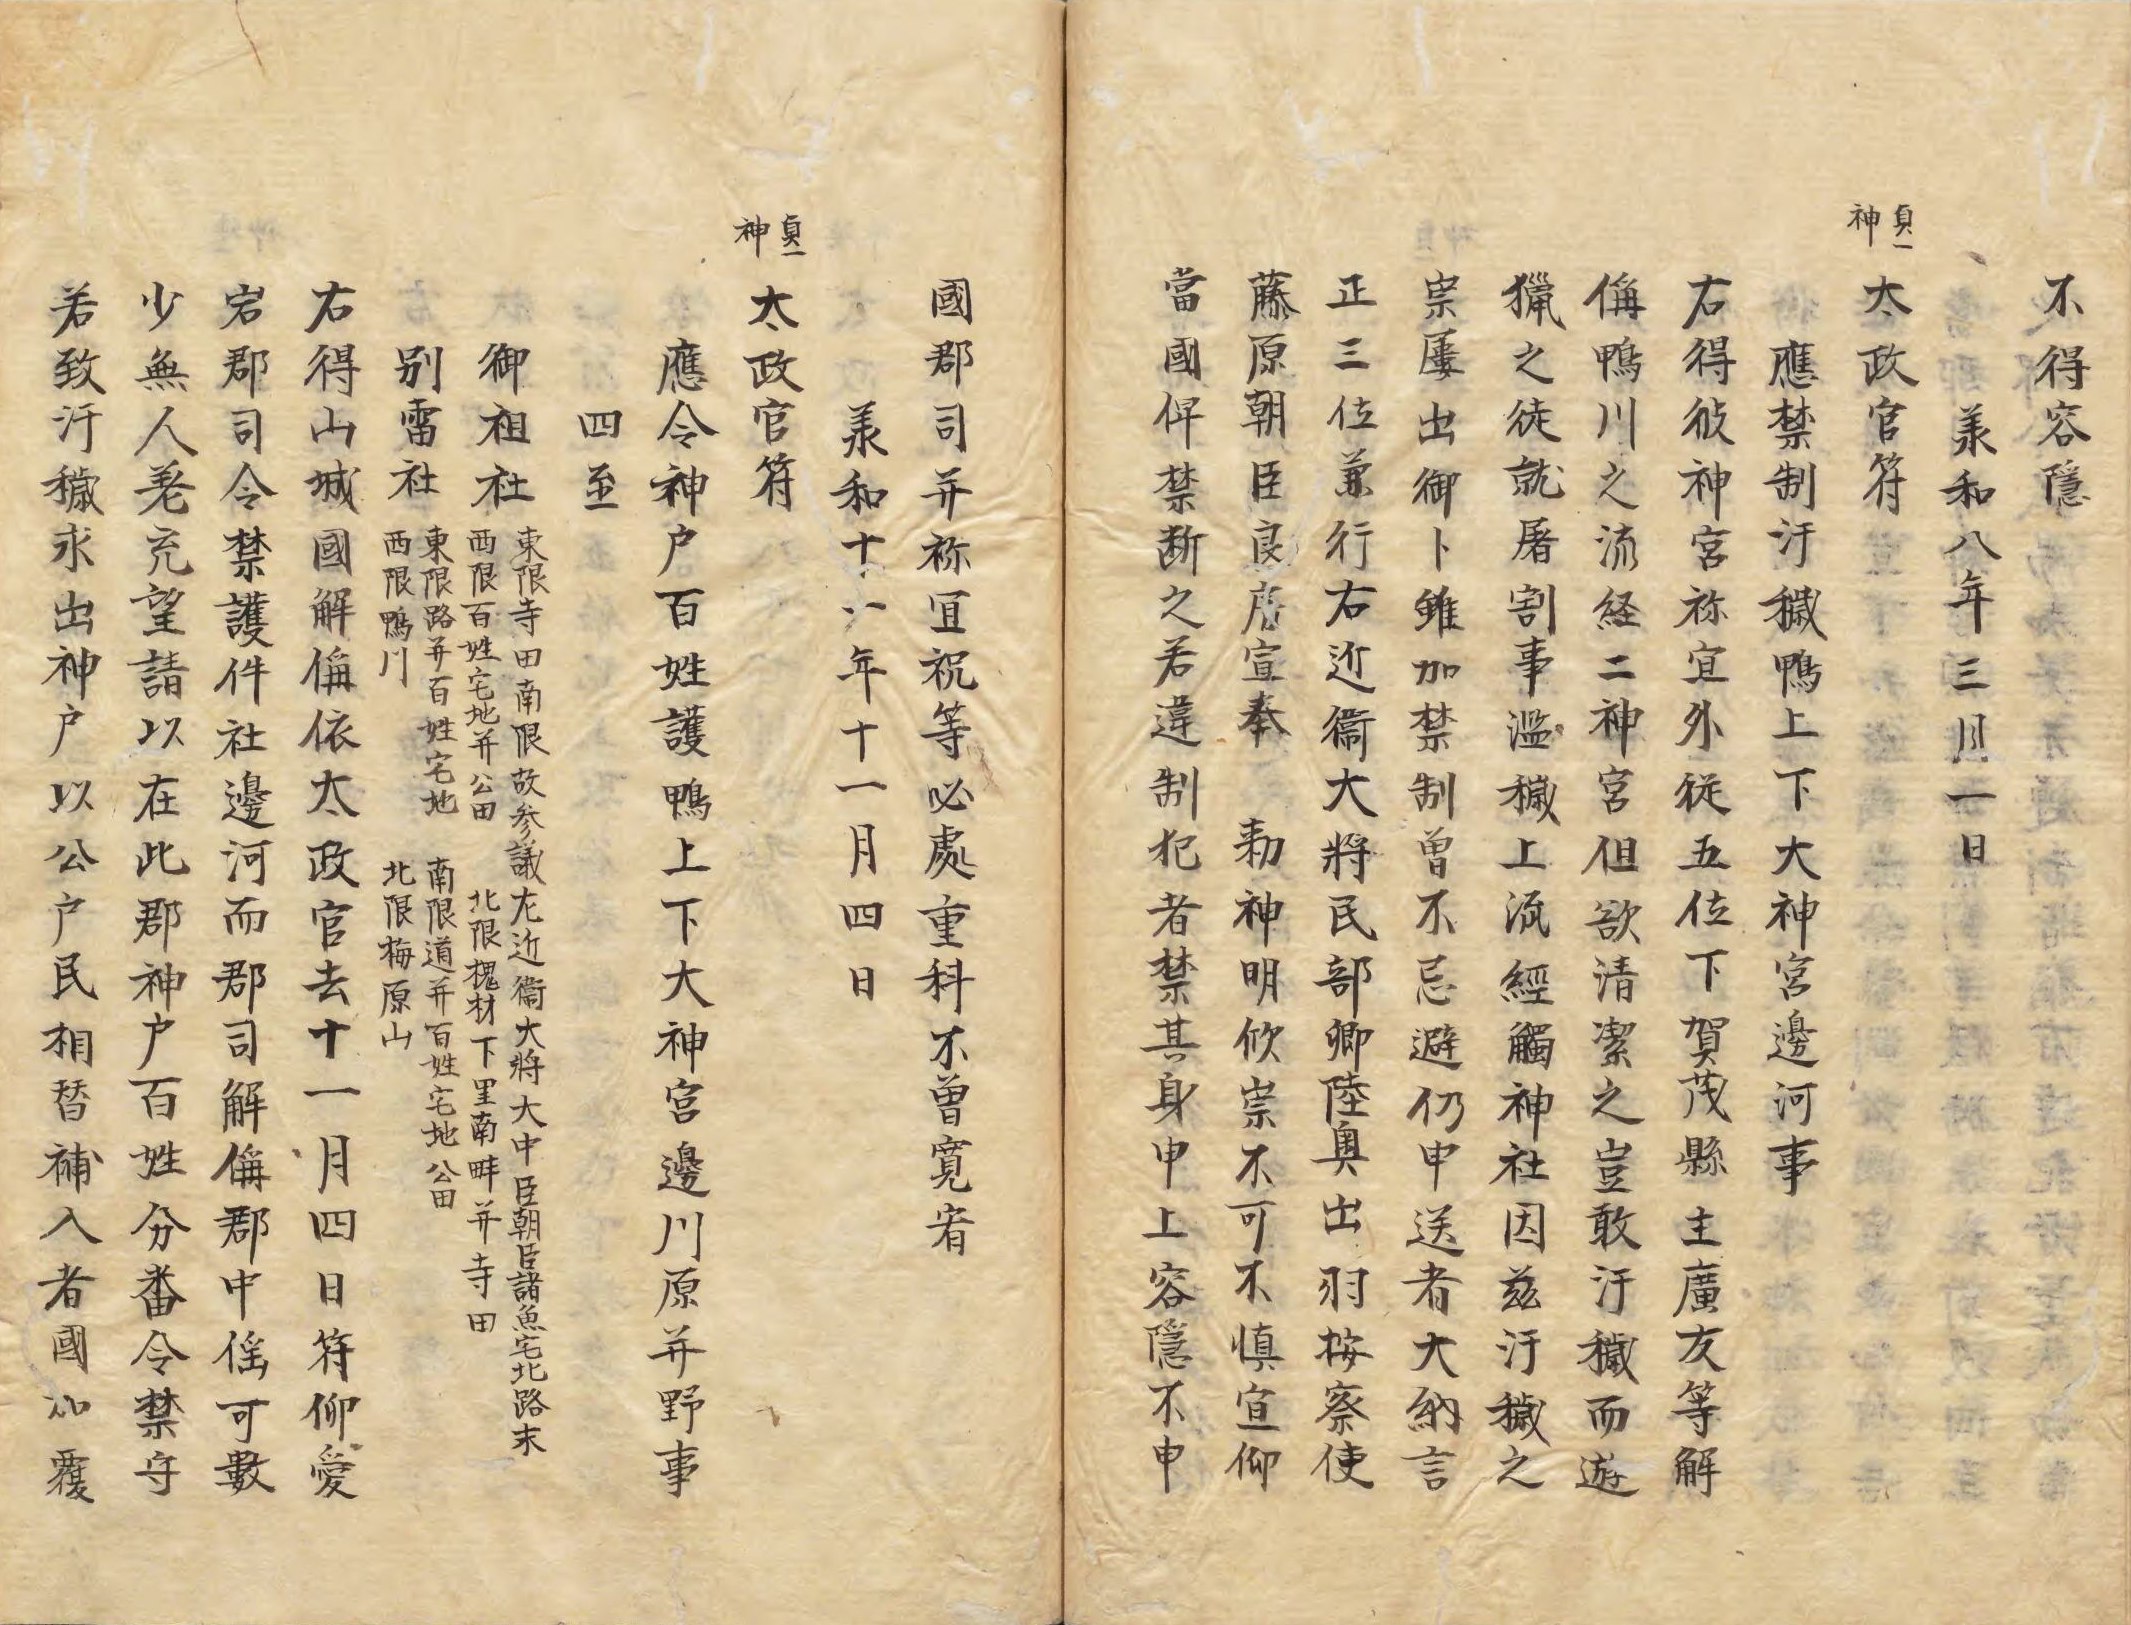 不得容隱
羕和八年三月一日
貞一
神
太政官符
應禁制汙穢鴨上下大神宮邊河事
右得彼神宮祢宜外従五位下賀茂縣主廣友等解
偁鴨川之流経二神宮但欲清潔之豈敢汙穢而遊
獵之徒就屠割事濫穢上流經觸神社因茲汙穢之
祟屢出御卜雖加禁制曽不忌避仍申送者大納言
正三位兼行右近衞大將民部卿陸奥出羽按察使
藤原朝臣良房宣奉　勅神明攸祟不可不慎宣仰
當國俾禁断之若違制犯者禁其身申上容隱不申
國郡司并祢宜祝等必處重科不曽寛宥
羕和十一年十一月四日
貞一
神
太政官符
應令神户百姓護鴨上下大神宮邊川原并野事
四至
御祖社
東限寺田南限故参議左近衞大將大中臣朝臣諸魚宅北路末
西限百姓宅地并公田　北限槐材下里南畔并寺田
别雷社
東限路并百姓宅地　南限道并百姓宅地公田
西限鴨川　北限梅原山
右得山城國解偁依太政官去十一月四日符仰愛
宕郡司令禁護件社邊河而郡司解偁郡中徭可數
少無人差充望請以在此郡神户百姓分番令禁守
若致汙穢永出神户以公户民相替補入者國加覆